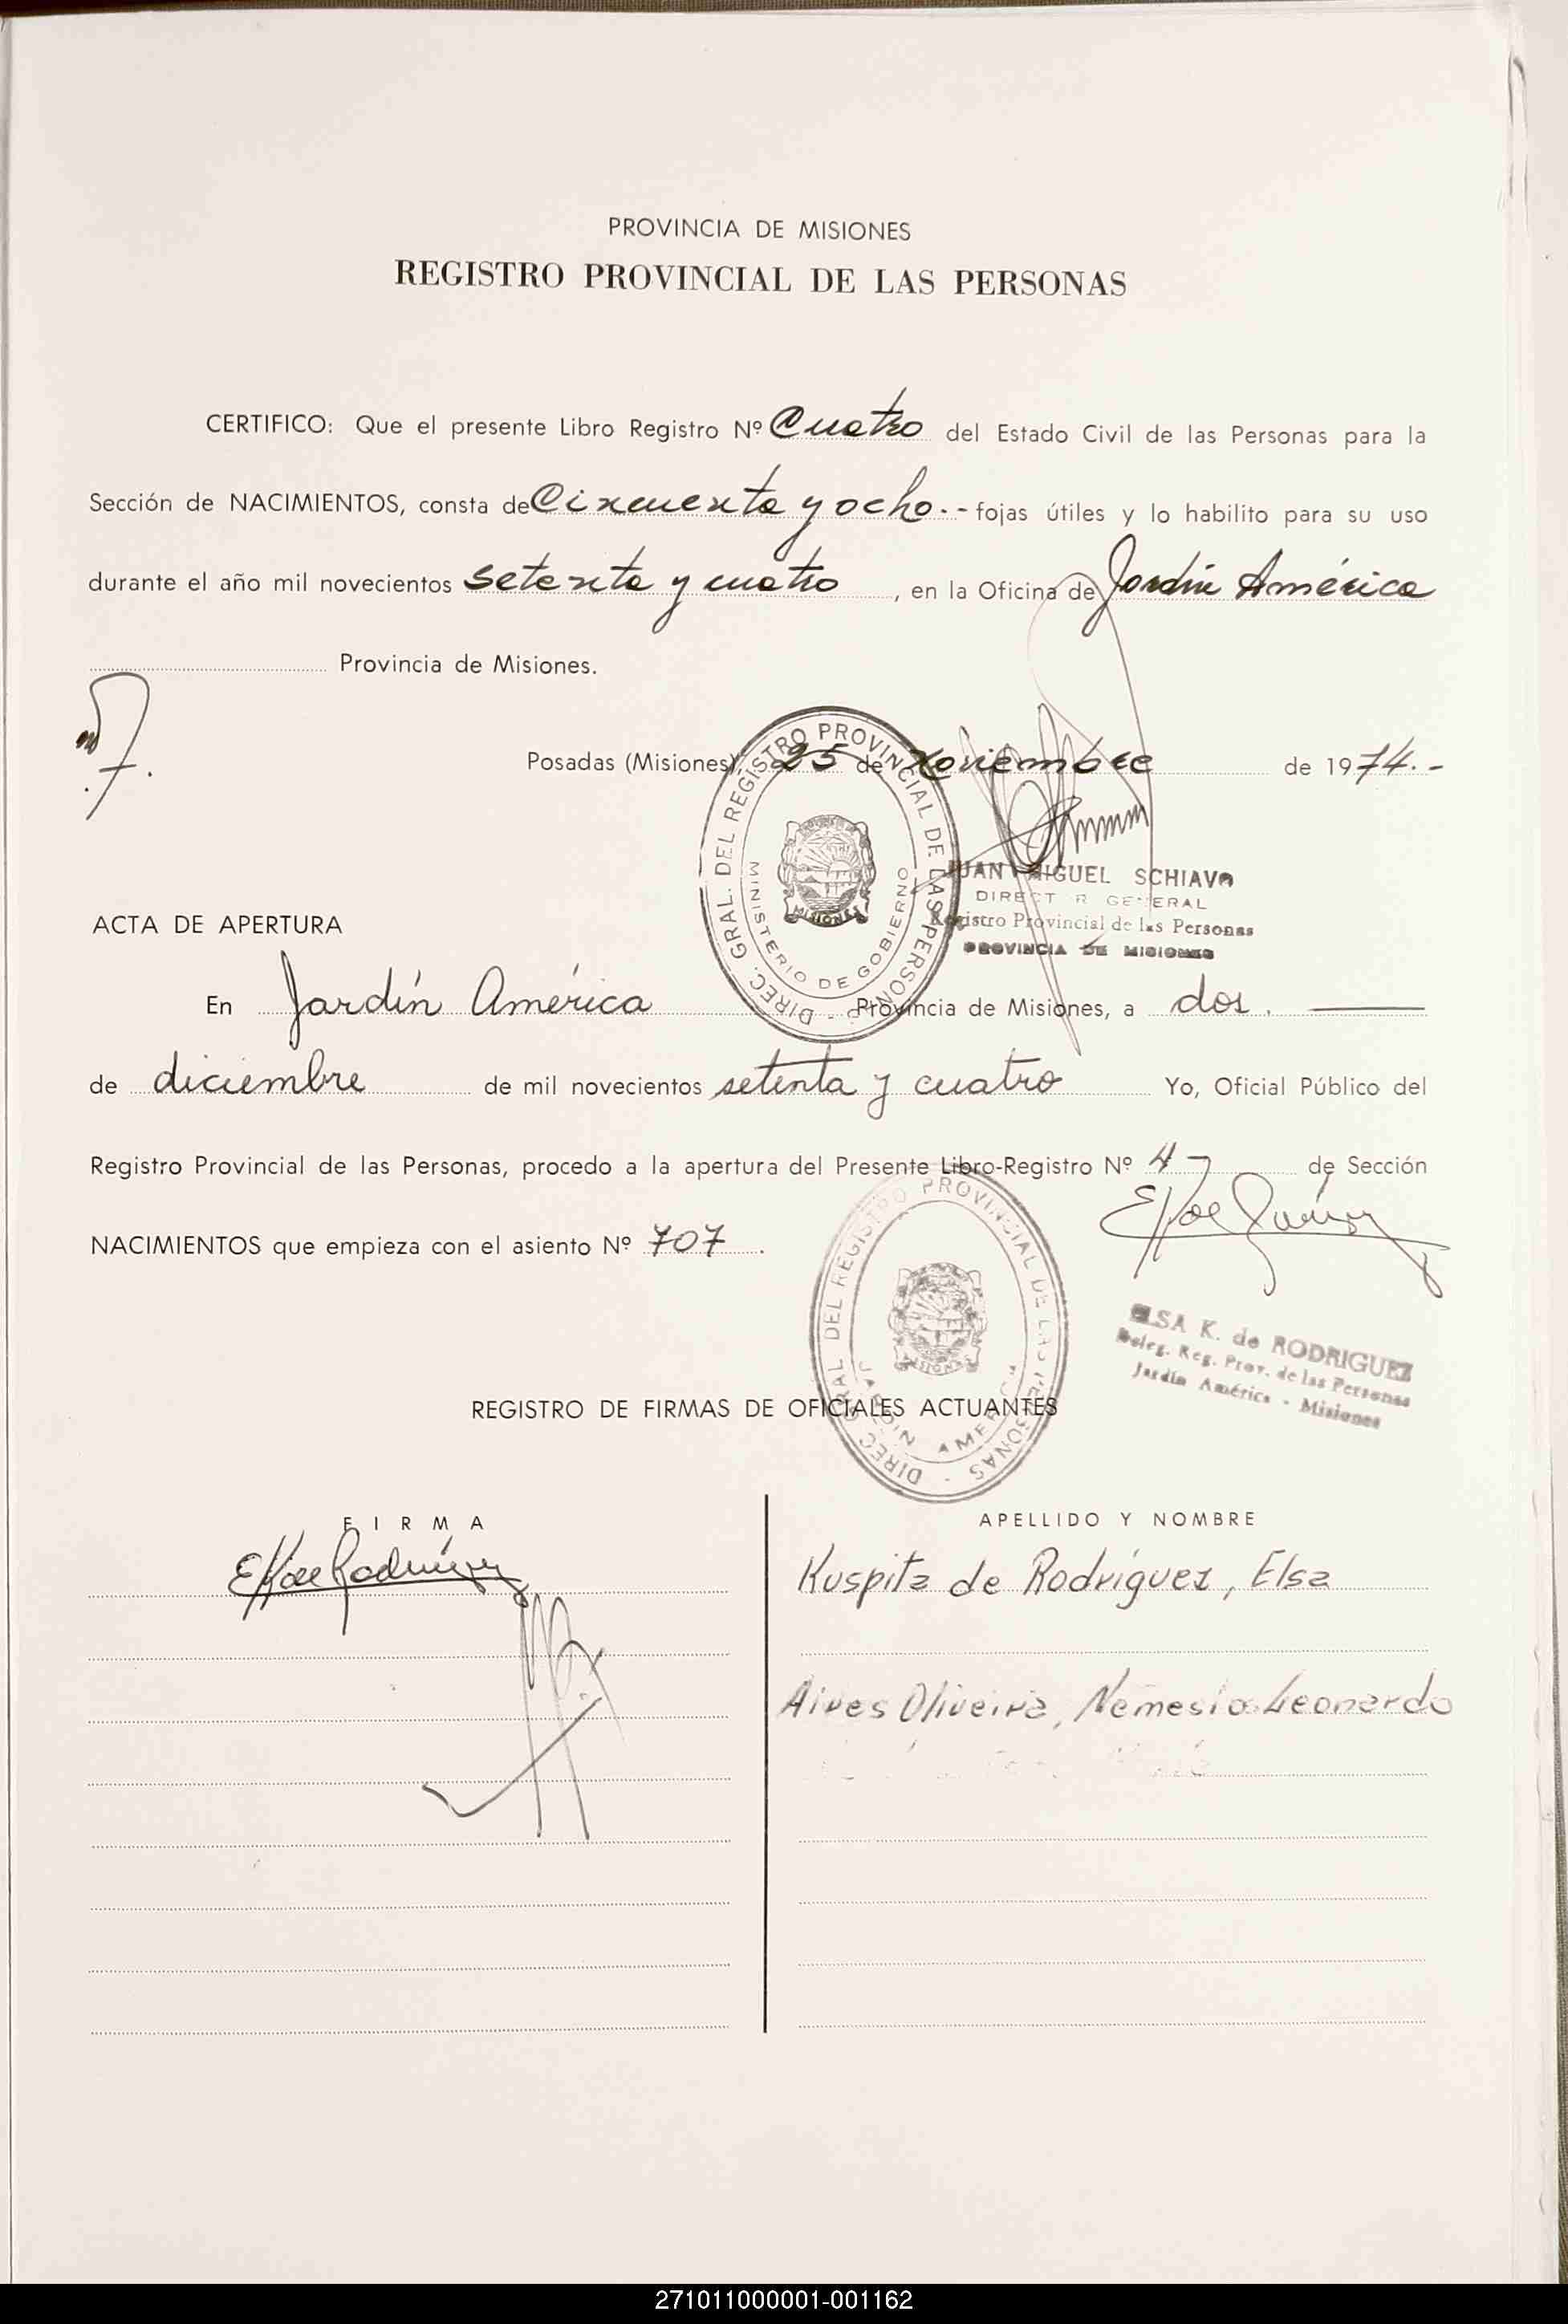 PROVINCIA DE MISIONES
REGISTRO PROVINCIAL DE LAS PERSONAS
CERTIFICO: Que el presente Libro Registro Nº Cuatro del Estado Civil de las Personas para la
Sección de NACIMIENTOS, consta de Cincuenta y ocho.- fojas útiles y lo habilito para su uso
durante el año mil novecientos setenta y cuatro, en la Oficina de Jardín América
Provincia de Misiones.
Posadas (Misiones), 25 de Noviembre de 1974.-
DIREC. GRAL. DEL REGISTRO PROVINCIAL DE LAS PERSONAS -
MINISTERIO DE GOBIERNO
MISIONES
JUAN MIGUEL SCHIAVO
DIRECTOR GENERAL
Registro Provincial de las Personas
PROVINCIA DE MISIONES
ACTA DE APERTURA
En Jardín América Provincia de Misiones, a dos.
de diciembre de mil novecientos setenta y cuatro Yo, Oficial Público del
Registro Provincial de las Personas, procedo a la apertura del Presente Libro-Registro Nº 4 de Sección
NACIMIENTOS que empieza con el asiento Nº 707.
DIREC. GRAL. DEL REGISTRO PROVINCIAL DE LAS PERSONAS -
JARDIN AMERICA
MISIONES
ELSA K. de RODRIGUEZ
Deleg. Reg. Prov. de las Personas
Jardín América - Misiones
REGISTRO DE FIRMAS DE OFICIALES ACTUANTES
FIRMA
APELLIDO Y NOMBRE
Kuspita de Rodríguez, Elsa
Alves Oliveira, Nemesio Leonardo
271011000001-001162